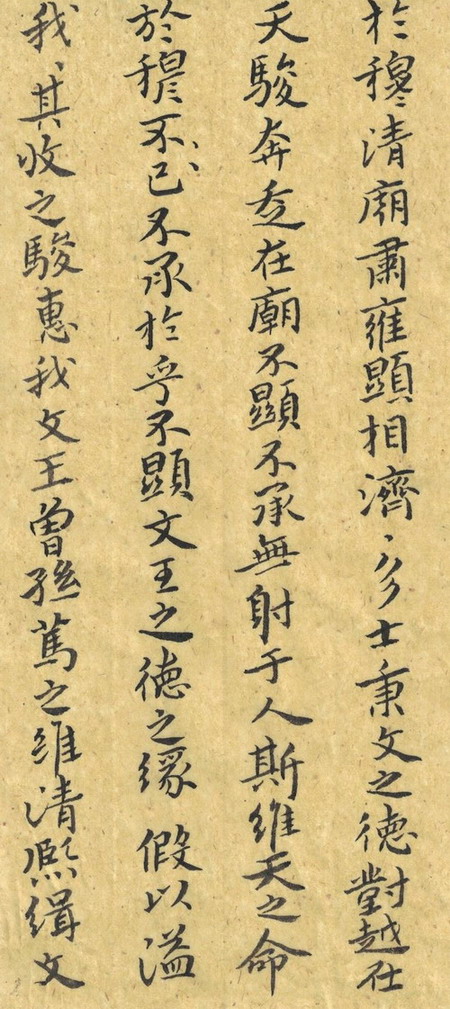 於穆清廟肅雍顯相濟、多士秉文之德對越在
天駿奔走在廟不顯不承無射于人斯維天之命
於穆不、已、不承於乎不顯文王之德之緣假以溢
我、其收之駿惠我文王曾孫篤之維清熙緝文